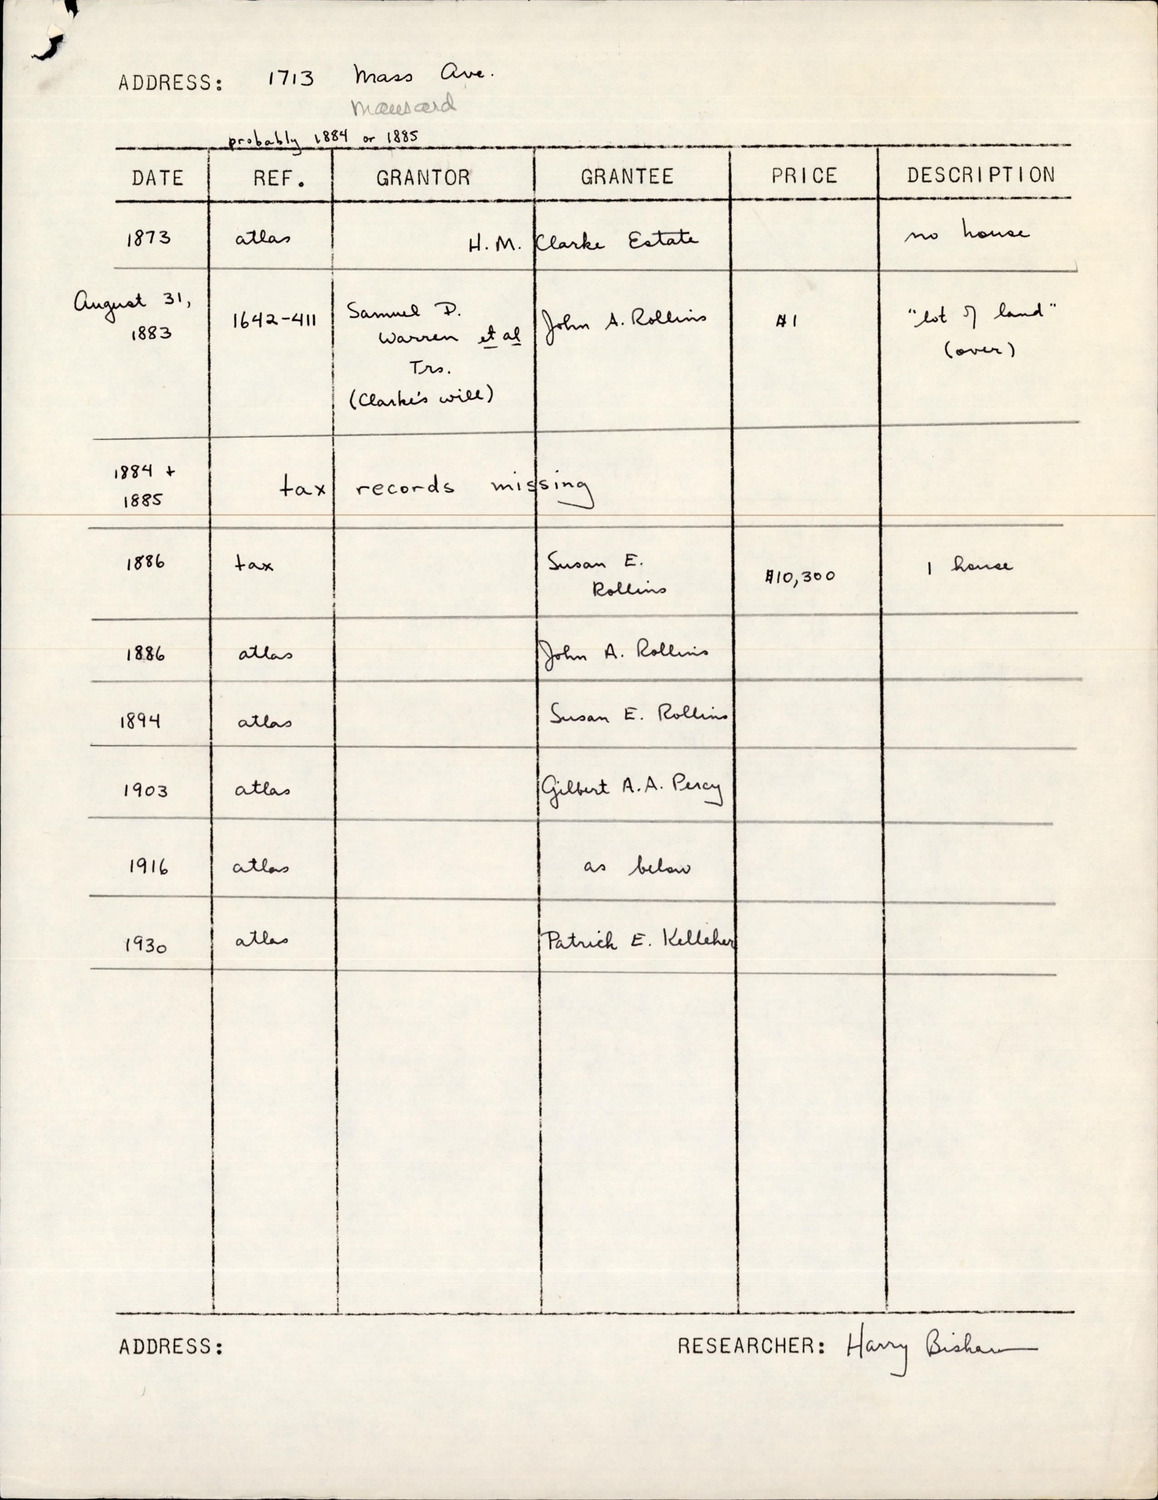 ADDRESS: 1713 Mass Ave.
Mansard
probably 1884 or 1885
DATE REF. GRANTOR GRANTEE PRICE DESCRIPTION
1873 atlas H.M. Clarke Estate no house
August 31,
1883 1642-411 Samuel D. John A. Rollins $1 "lot of land"
Warren et al (over)
Trs.
(Clarke's will)
1884 +
1885 tax records missing
1886 tax Susan E. $10,300 1 house
Rollins
1886 atlas John A. Rollins
1894 atlas Susan E. Rollins
1903 atlas Gilbert A.A. Percy
1916 atlas as below
1930 atlas Patrick E. Kelleher
ADDRESS: RESEARCHER: Harry